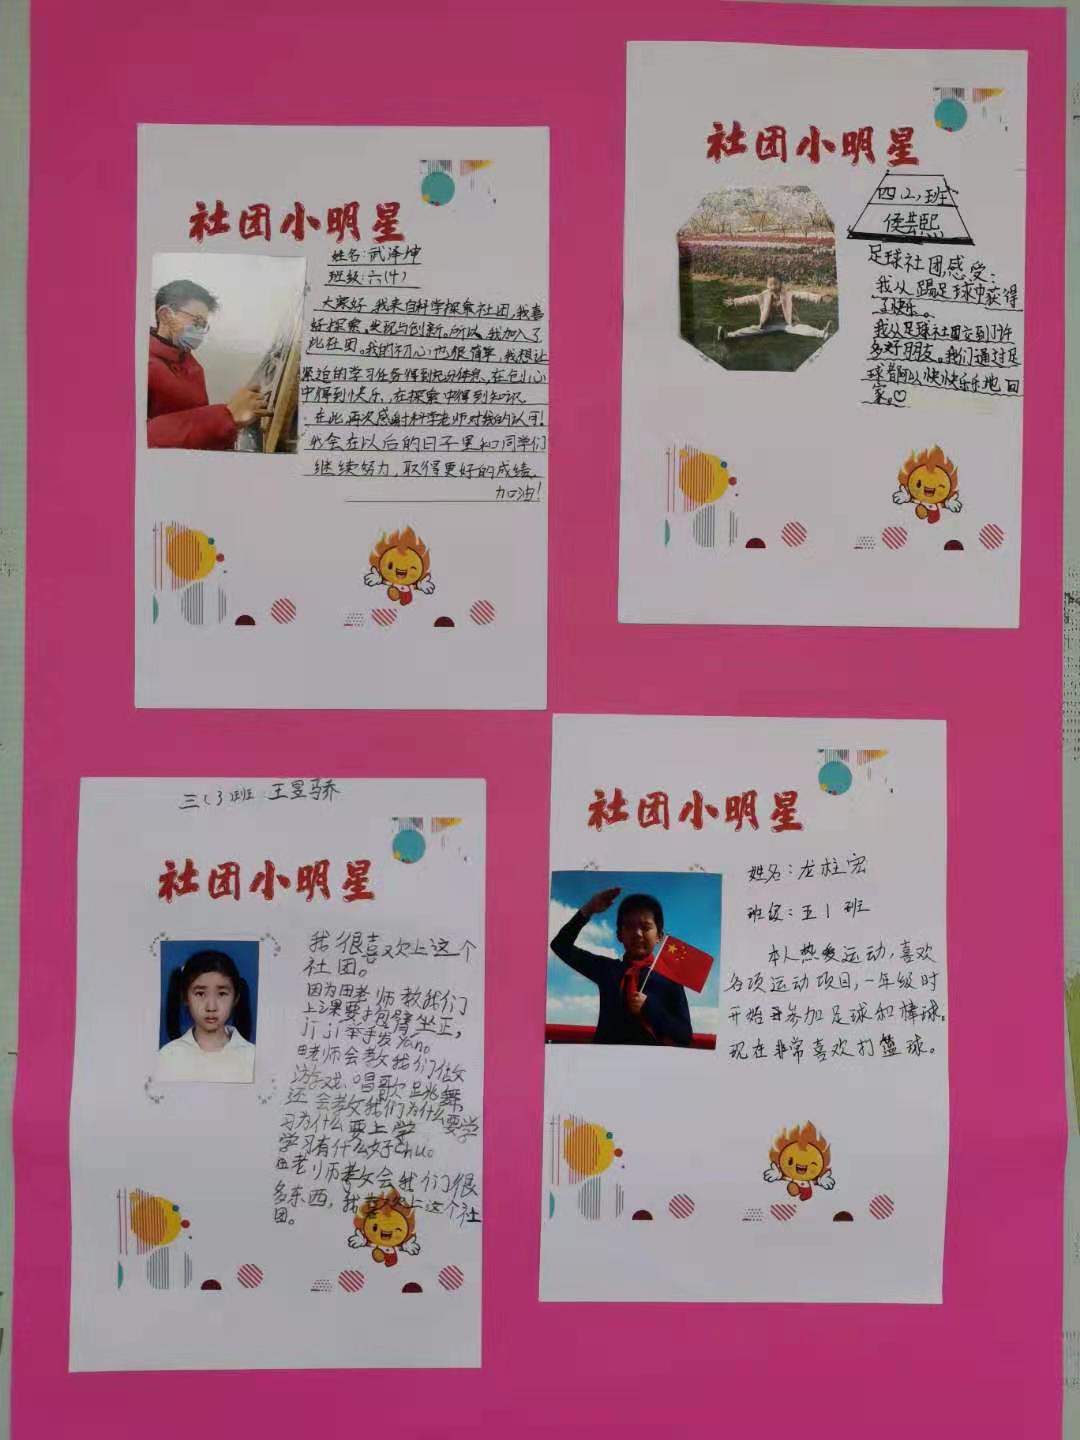 社团小明星
姓名:武泽坤
班级:六(4)
大家好,我来自科学探索社团,我喜
好探索、发现与创新。所以,我加入了
此社团。我的初心也很简单,我想让
紧迫的学习任务得到充分休息,在
中得到快乐,在探索中得到知识。
在此再次感谢科学老师对我的认可!
我会在以后的日子里和同学们
继续努力,取得更好的成绩。
加油!
社团小明星
四(2)班
侯芸熙
足球社团感受:
我从踢足球中获得
了快乐。
我从足球社团交到了许
多好朋友。我们通过足
球都可以快快乐乐地回
家。♡
三(3)班:王昱骄
社团小明星
我很喜欢上这个
社团。
因为田老师教我们
上课要抱臂坐正,
ji ji举手发yan。
田老师会教我们做
游戏、唱歌、跳舞,
还会教我们为什么要学
习为什么要上学
学习有什么好chu。
田老师教会我们很
多东西,我喜欢上这个社
团。
社团小明星
姓名:龙柱宏
班级:五1班
本人热爱运动,喜欢
各项运动项目,一年级时
开始参加足球和棒球。
现在非常喜欢打篮球。